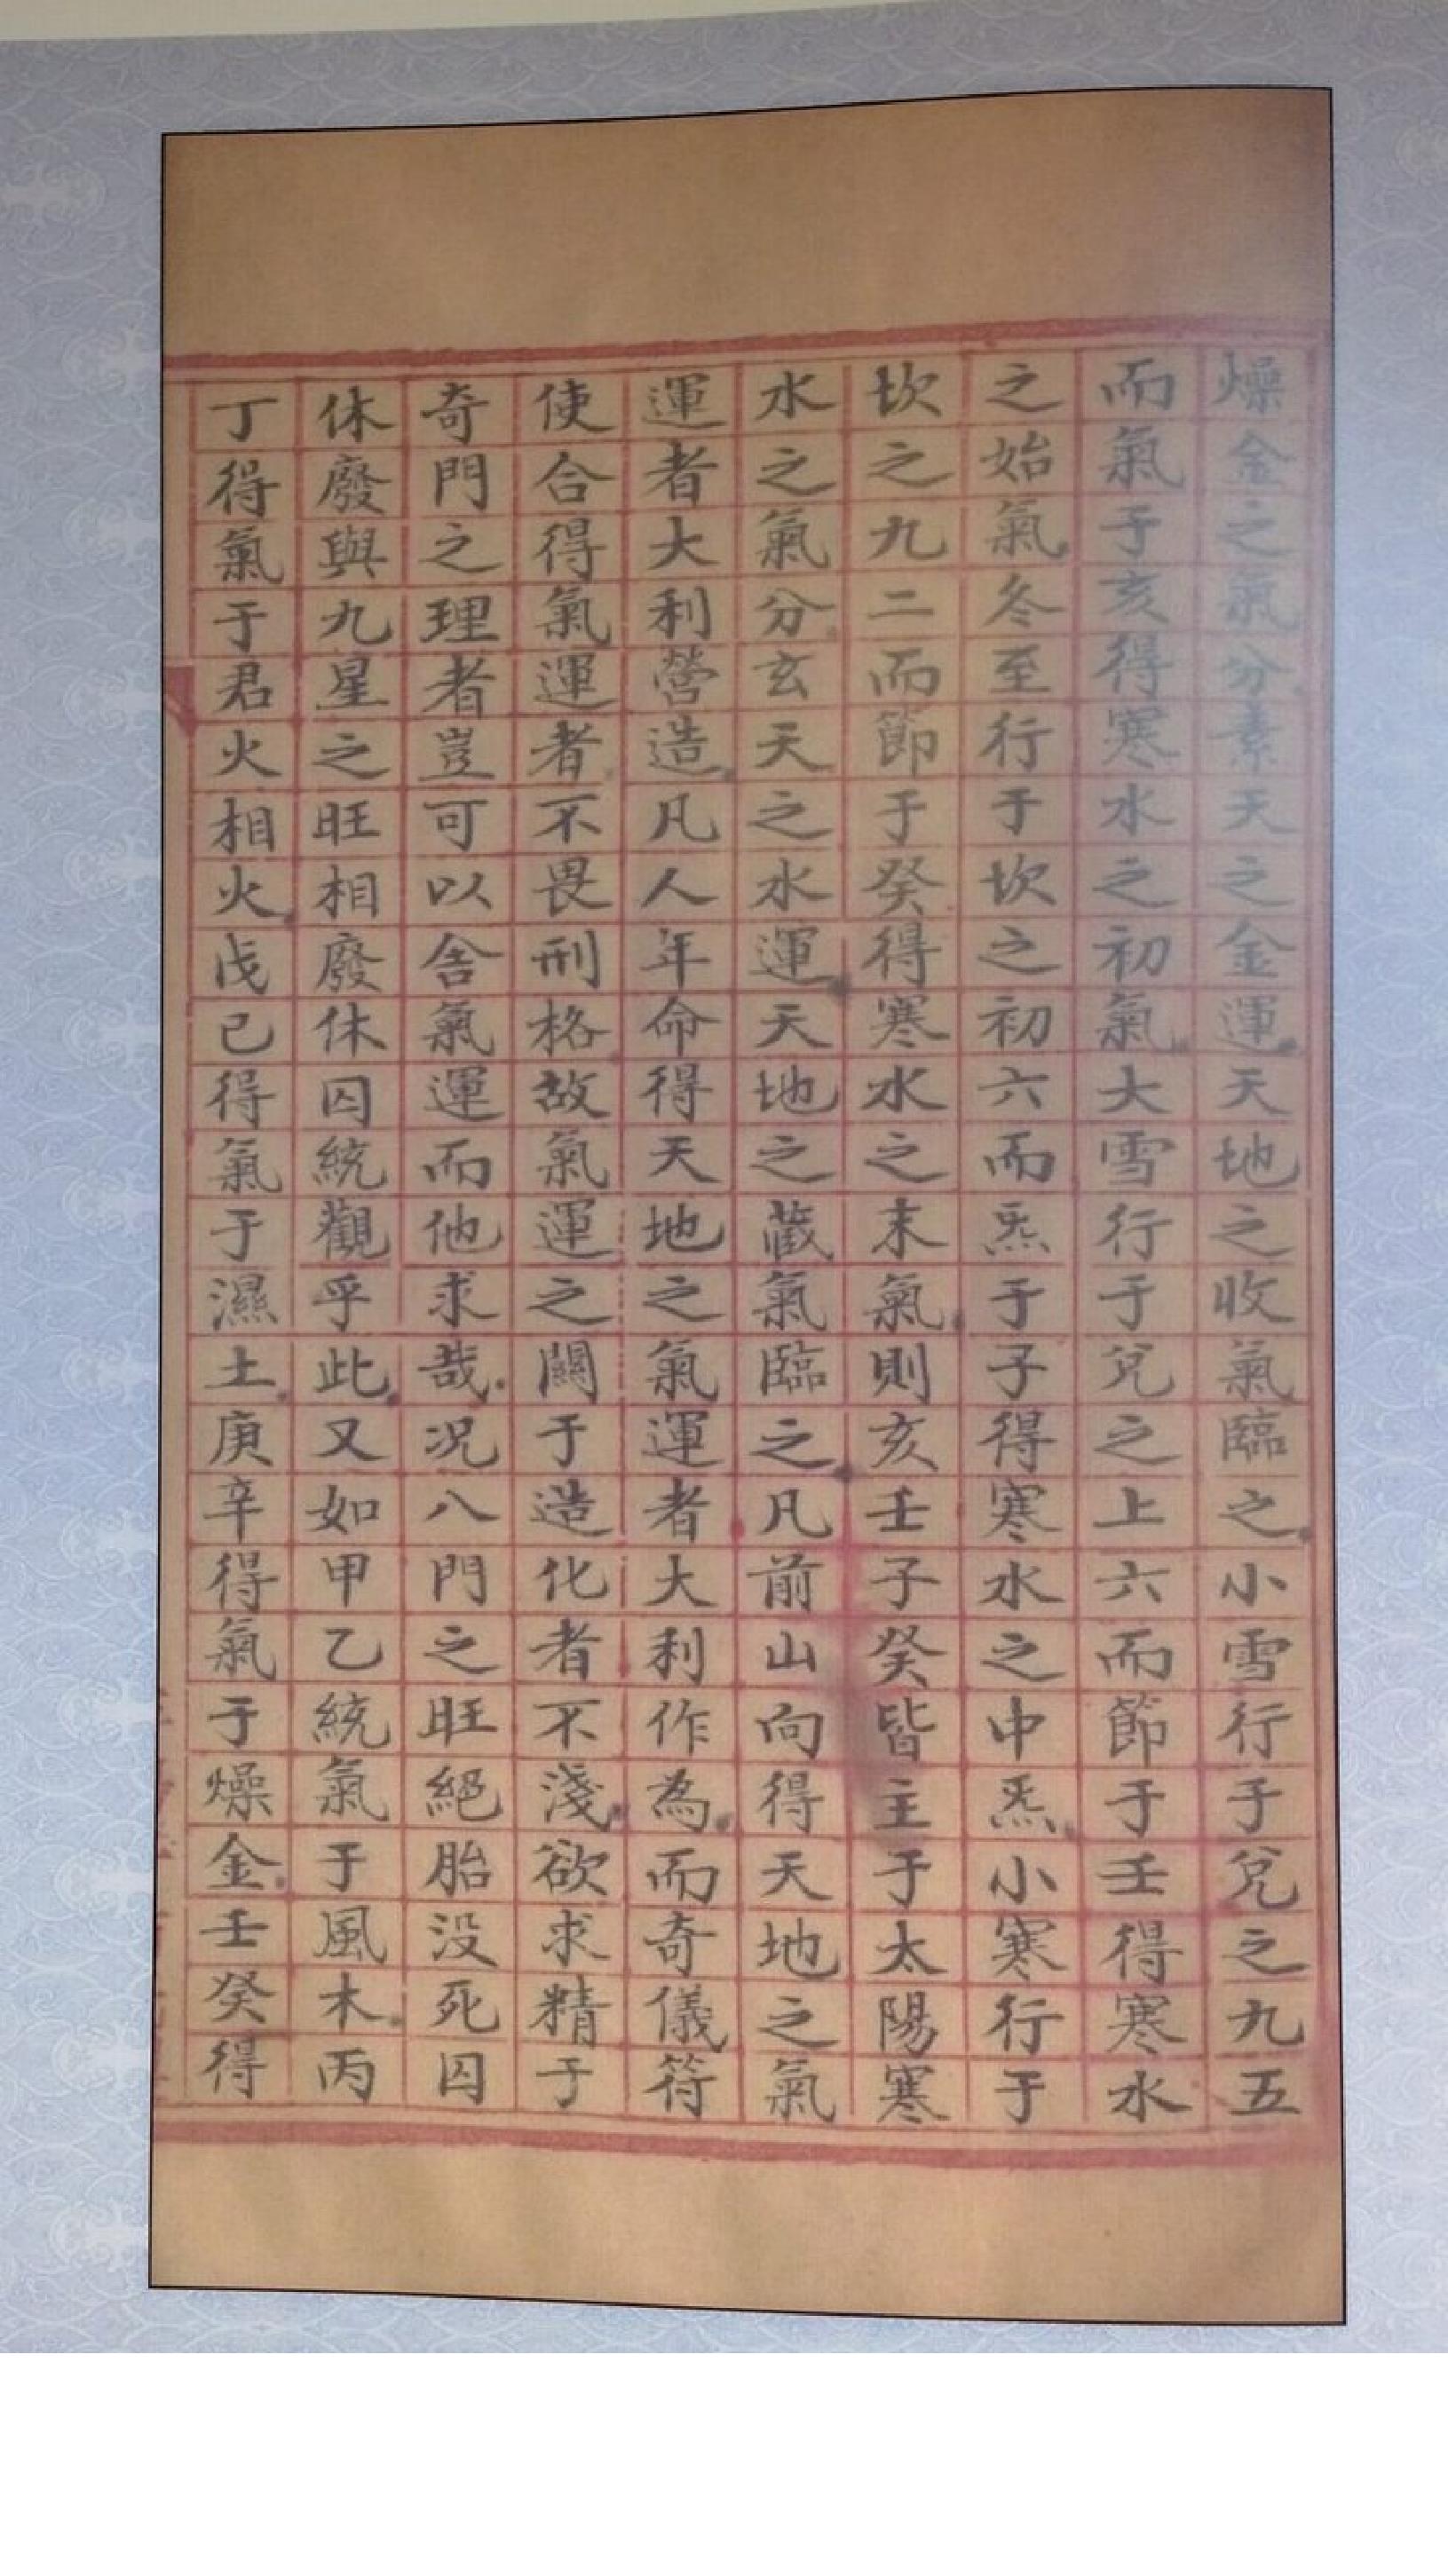 燥金之氣分素天之金運天地之收氣臨之小雪行于兌之九五
而氣于亥得寒水之初氣大雪行于兌之上六而節于壬得寒水
之始氣冬至行于坎之初六而炁于子得寒水之中炁小寒行于
坎之九二而節于癸得寒水之末氣則亥壬子癸皆主于太陽寒
水之氣分玄天之水運天地之藏氣臨之凡前山向得天地之氣
運者大利營造凡人年命得天地之氣運者大利作為而奇儀符
使合得氣運者不畏刑格故氣運之關于造化者不淺欲求精于
奇門之理者豈可以舍氣運而他求哉况八門之旺絕胎没死囚
休廢與九星之旺相廢休囚統觀乎此又如甲乙統氣于風木丙
丁得氣于君火相火戊己得氣于濕土庚辛得氣于燥金壬癸得